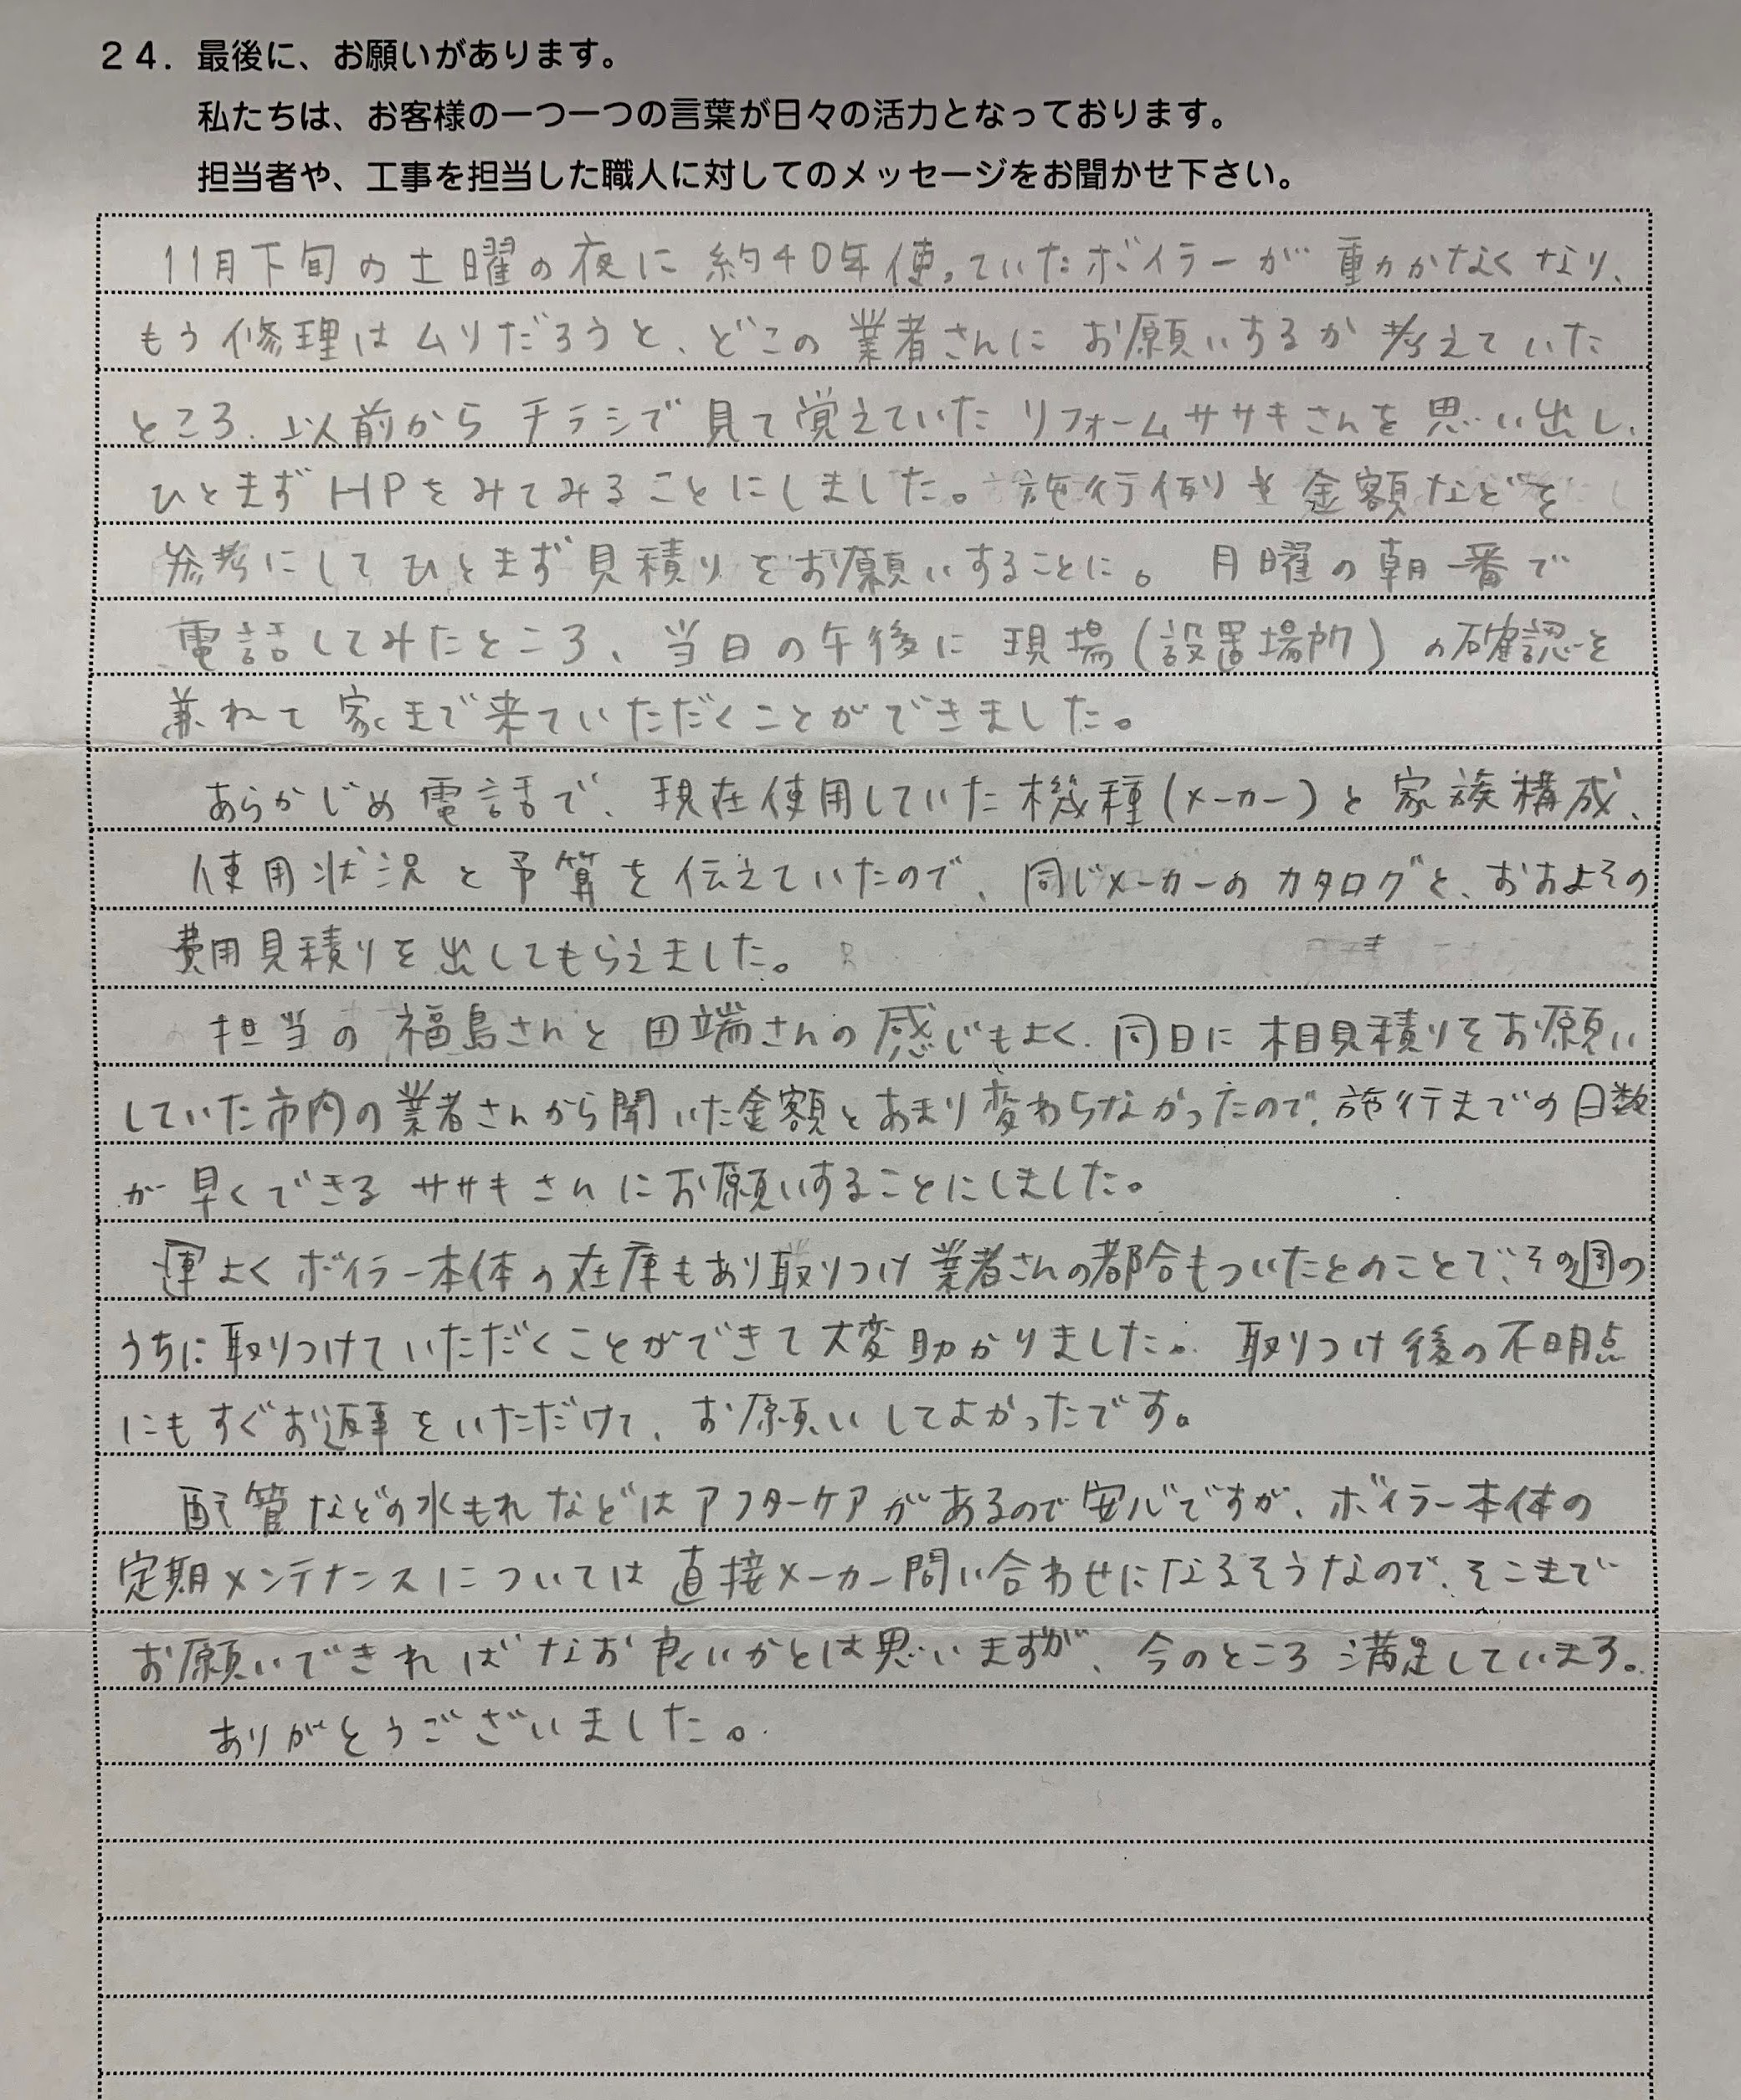 24. 最後に、お願いがあります。
私たちは、お客様の一つ一つの言葉が日々の活力となっております。
担当者や、工事を担当した職人に対してのメッセージをお聞かせ下さい。
11月下旬の土曜の夜に約40年使っていたボイラーが動かなくなり、
もう修理はムリだろうと、どこの業者さんにお願いするか考えていた
ところ、以前からチラシで見て覚えていたリフォームササキさんを思い出し、
ひとまずHPをみてみることにしました。施行例や金額などを
参考にしてひとまず見積りをお願いすることに。月曜の朝一番で
電話してみたところ、当日の午後に現場(設置場所)の確認を
兼ねて家まで来ていただくことができました。
あらかじめ電話で、現在使用していた機種(メーカー)と家族構成、
使用状況と予算を伝えていたので、同じメーカーのカタログと、おおよその
費用見積りを出してもらえました。
担当の福島さんと田端さんの感じもよく、同日に相見積りをお願い
していた市内の業者さんから聞いた金額とあまり変わらなかったので、施行までの日数
が早くできるササキさんにお願いすることにしました。
運よくボイラー本体の在庫もあり取りつけ業者さんの都合もついたとのことで、その週の
うちに取りつけていただくことができて大変助かりました。取りつけ後の不明点
にもすぐお返事をいただけて、お願いしてよかったです。
配管などの水もれなどはアフターケアがあるので安心ですが、ボイラー本体の
定期メンテナンスについては直接メーカー問い合わせになるそうなので、そこまで
お願いできればなお良いかとは思いますが、今のところ満足しています。
ありがとうございました。